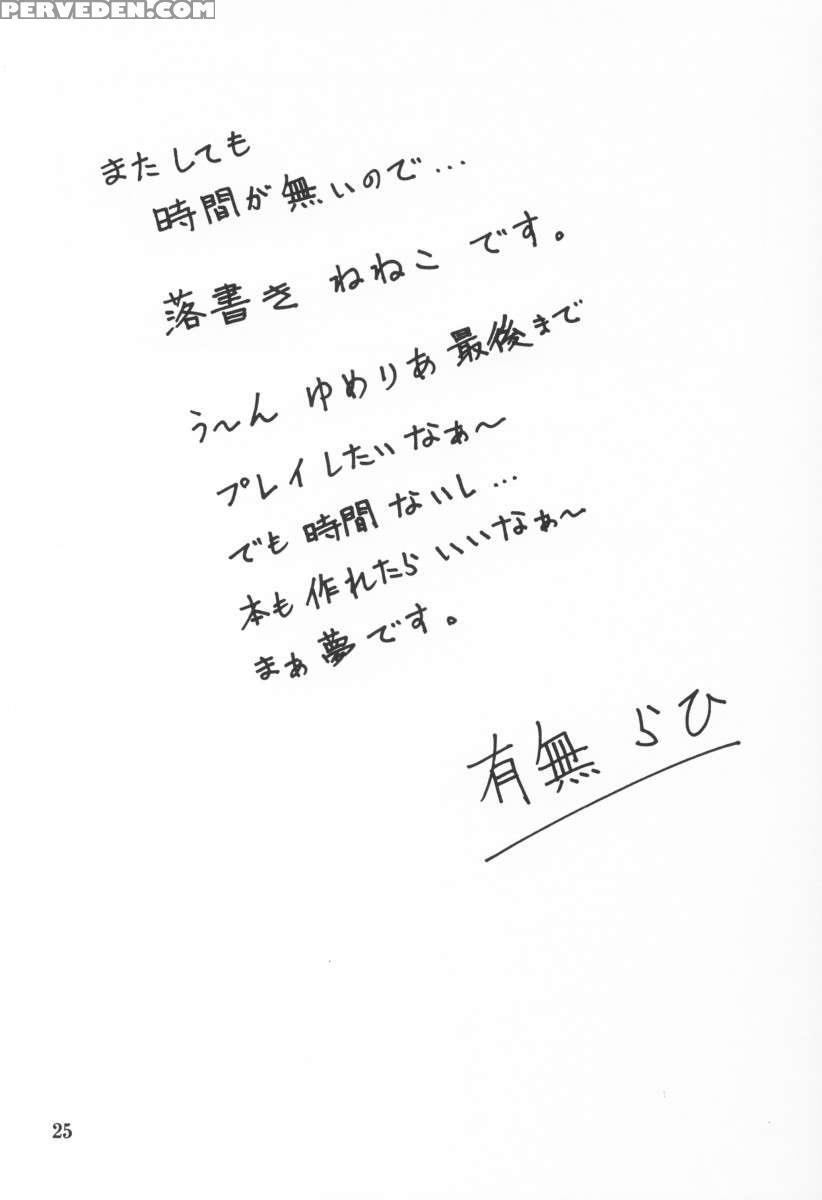 PERVEDEN.COM
またしても
時間が無いので…
落書き ねねこ です。
う〜ん ゆめりあ 最後まで
プレイしたいなぁ〜
でも 時間 ないし…
本も 作れたら いいなぁ〜
まぁ 夢です。
有無 らひ
25